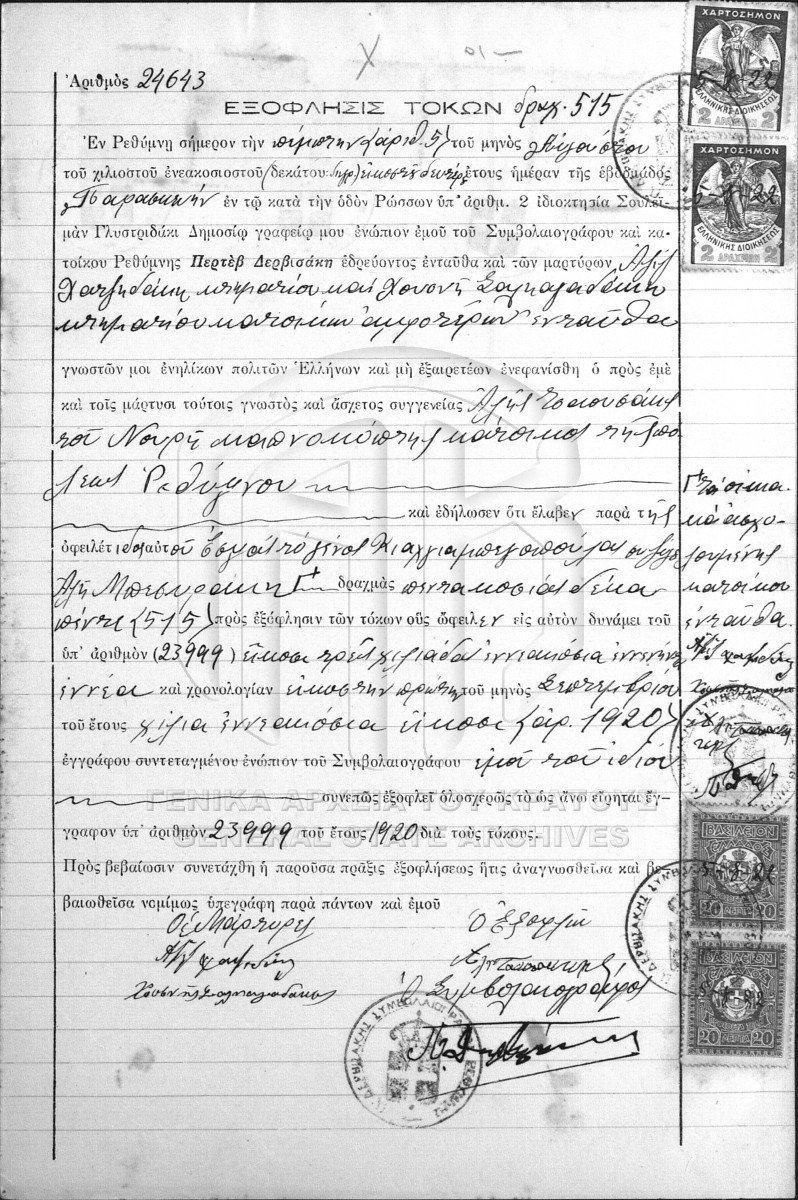 Ἀριθμὸς 24643
ΕΞΟΦΛΗΣΙΣ ΤΟΚΩΝ δραχ. 515
Ἐν Ρεθύμνῃ σήμερον τὴν πέμπτην (ἀριθ. 5) τοῦ μηνὸς Αὐγούστου
τοῦ χιλιοστοῦ ἐνεακοσιοστοῦ (δεκάτου: διγρ) εἰκοστοῦ δευτέρου ἔτους ἡμέραν τῆς ἑβδομάδος
Παρασκευὴν ἐν τῷ κατὰ τὴν ὁδὸν Ρώσσων ὑπ' ἀριθμ. 2 ἰδιοκτησίᾳ Σουλεϊ-
μὰν Γλυστριδάκι Δημοσίῳ γραφείῳ μου ἐνώπιον ἐμοῦ τοῦ Συμβολαιογράφου καὶ κα-
τοίκου Ρεθύμνης Περτὲβ Δερβισάκη ἑδρεύοντος ἐνταῦθα καὶ τῶν μαρτύρων
Χατζηδάκη κτηματίου καὶ Χουσνῆ
κτηματίου κατοίκων ἀμφοτέρων ἐνταῦθα
γνωστῶν μοι ἐνηλίκων πολιτῶν Ἑλλήνων καὶ μὴ ἐξαιρετέων ἐνεφανίσθη ὁ πρὸς ἐμὲ
καὶ τοῖς μάρτυσι τούτοις γνωστὸς καὶ ἄσχετος συγγενείας Ἀλῆς
τοῦ Νουρῆ καπνοκόπτης κάτοικος τῆς πό-
λεως Ρεθύμνου
καὶ ἐδήλωσεν ὅτι ἔλαβεν παρὰ τῆς
ὀφειλέτιδος αὐτοῦ τὸ γένος συζ.
Ἀλῆ δραχμὰς πεντακοσίας δέκα
πέντε (515) πρὸς ἐξόφλησιν τῶν τόκων οὓς ὤφειλεν εἰς αὐτὸν δυνάμει τοῦ
ὑπ' ἀριθμὸν (23999) εἴκοσι τρεῖς χιλιάδας ἐννεακόσια ἐνενήντα
ἐννέα καὶ χρονολογίαν εἰκοστὴν πρώτην τοῦ μηνὸς Σεπτεμβρίου
τοῦ ἔτους χίλια ἐννεακόσια εἴκοσι (ἀρ. 1920)
ἐγγράφου συντεταγμένου ἐνώπιον τοῦ Συμβολαιογράφου ἐμοῦ τοῦ ἰδίου
συνεπῶς ἐξοφλεῖ ὁλοσχερῶς τὸ ὡς ἄνω εἴρηται ἔγ-
γραφον ὑπ' ἀριθμὸν 23999 τοῦ ἔτους 1920 διὰ τοὺς τόκους.
Πρὸς βεβαίωσιν συνετάχθη ἡ παροῦσα πρᾶξις ἐξοφλήσεως ἥτις ἀναγνωσθεῖσα καὶ βε-
βαιωθεῖσα νομίμως ὑπεγράφη παρὰ πάντων καὶ ἐμοῦ
Οἱ Μάρτυρες
Ὁ Ἐξοφλῶν
Ὁ Συμβολαιογράφος
τὰ οἰκια-
κὰ ἀσχο-
λουμένης
κατοίκου
ἐνταῦθα.
ΧΑΡΤΟΣΗΜΟΝ
5-8-22
ΕΛΛΗΝΙΚΗΣ ΔΙΟΙΚΗΣΕΩΣ
2 ΔΡΑΧΜΑΙ 2
ΧΑΡΤΟΣΗΜΟΝ
5-8-22
ΕΛΛΗΝΙΚΗΣ ΔΙΟΙΚΗΣΕΩΣ
2 ΔΡΑΧΜΑΙ 2
ΒΑΣΙΛΕΙΟΝ
ΕΛΛΑΔΟΣ
5-8-22
20 ΛΕΠΤΑ 20
ΒΑΣΙΛΕΙΟΝ
ΕΛΛΑΔΟΣ
20 ΛΕΠΤΑ 20
ΓΕΝΙΚΑ ΑΡΧΕΙΑ ΤΟΥ ΚΡΑΤΟΥΣ
GENERAL STATE ARCHIVES